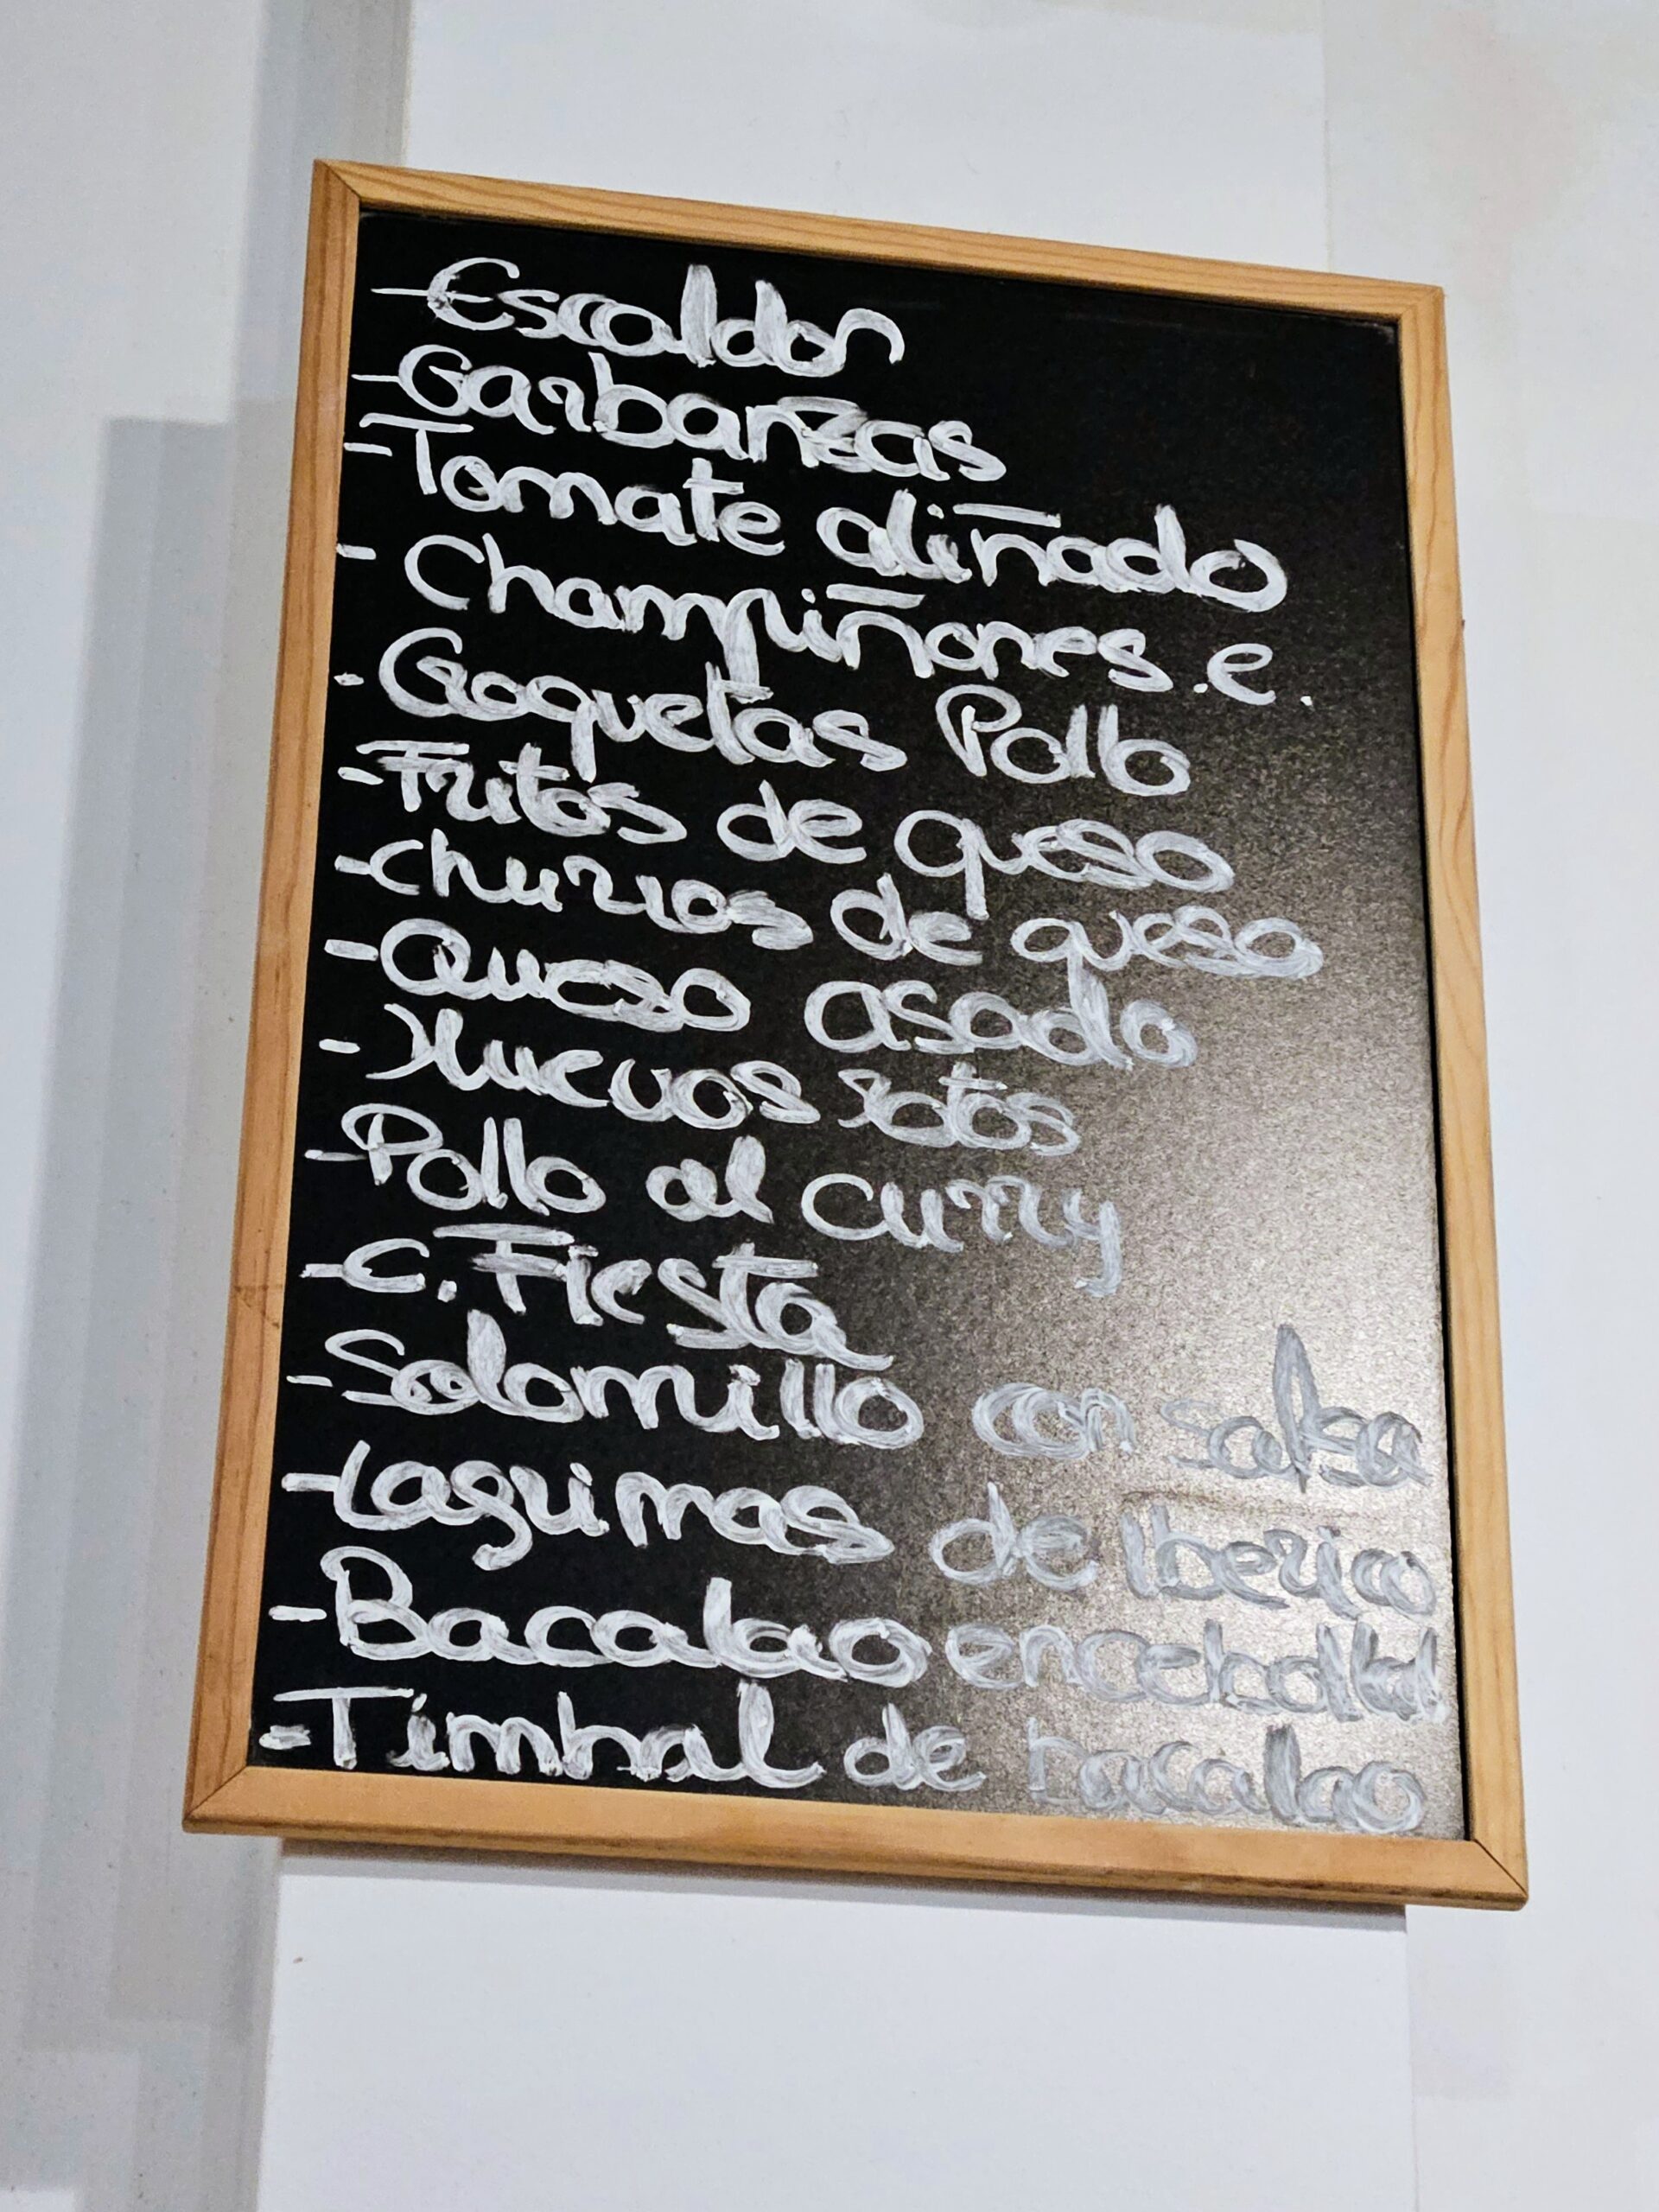 - Escaldon
- Garbanzas
- Tomate aliñado
- Champiñones .e.
- Croquetas Pollo
- Fritos de queso
- churros de queso
- Queso asado
- Huevos rotos
- Pollo al curry
- C. Fiesta
- Solomillo con salsa
- Lagrimas de Iberico
- Bacalao encebollad
- Timbal de bacalao